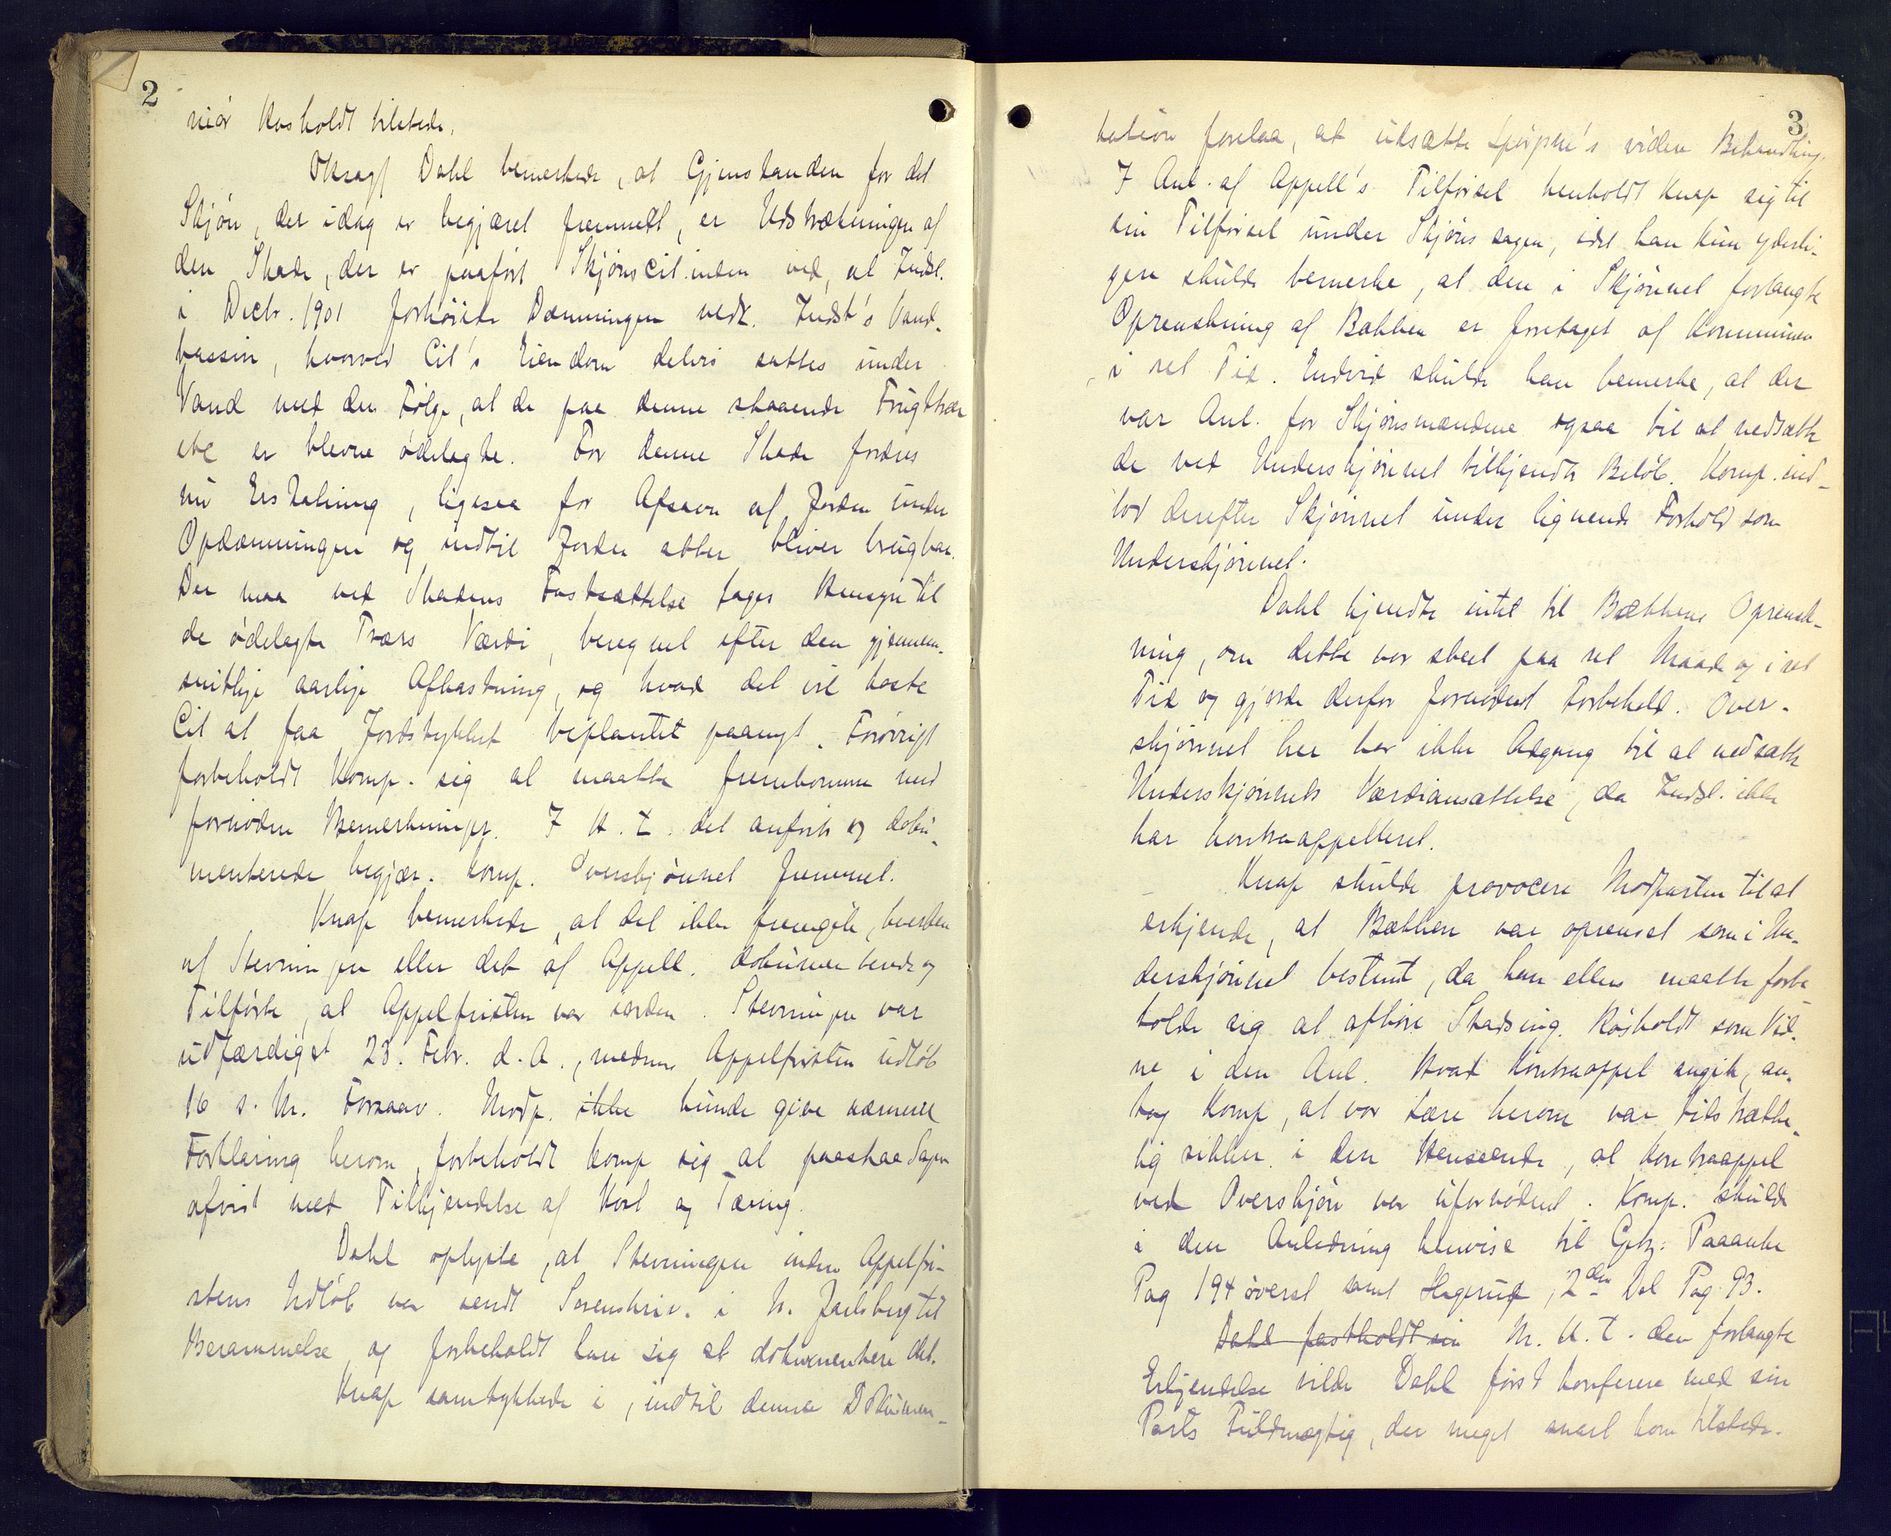 2
niør Rosholdt tilstede.
Oksagf Dahl bemerkede, at Gjenstanden for det
Skjøn, der idag er begjæret fremmet, er Udstrækningen af
den Skade, der er paaført Skjønscit. inden ved, at Indst.
i Decbr. 1901 forhøiede Dæmningen nedt. Indst's Vand-
bassin, hvorved Cit's Eiendom delvis sattes under
Vand med den Følge, at de paa denne staaende Frugttrær
etc er blevne ødelagte. For denne Skade fordres
nu Erstatning, ligesaa for Afsavn af Jorden under
Opdæmningen og indtil Jorden atter bliver brugbar.
Der maa ved Skadens Fastsættelse tages Hensyn til
de ødelagte Træers Værdi, beregnet efter den gjennem-
snitlige aarlige Afkastning, og hvad det vil koste
Cit at faa Jordstykket beplantet paanyt. Forøvrigt
forbeholdt Komp. sig at maatte fremkomme med
fornødne Bemerkninger. I H. T. det anførte og doku-
menterede begjær. Komp. Overskjønnet fremmet.
Knap bemerkede, at det ikke fremgik, hverken
af Stevningen eller det af Appell. dokumenterede og
Tilførte, at Appelfristen var iorden. Stevningen var
udfærdiget 23. Febr. d. A., medens Appelfristen udløb
16 s. M. Forsaav. Modp. ikke kunde give nærmere
Forklaring herom, forbeholdt Komp sig at paastaa Sagen
afvist med Tilkjendelse af Kost og Tæring.
Dahl oplyste, at Stevningen inden Appelfri-
stens Udløb var sendt Sorenskriv. i N. Jarlsberg til
Berammelse og forbeholdt han sig at dokumentere det.
Knap samtykkede i, indtil denne Dokumen-
3
tation forelaa, at udsætte Spørgsm's videre Behandling.
I Anl. af Appell's Tilførsel henholdt Knap sig til
sin Tilførsel under Skjønssagen, idet han kun yderli-
gere skulde bemerke, at den i Skjønnet forlangte
Oprenskning af Bækken er foretaget af Kommunen
i ret Tid. Endvid skulde han bemerke, at der
var Anl. for Skjønsmændene ogsaa til at nedsætte
de ved Underskjønnet tilkjendte Beløb. Komp. ind-
lod derefter Skjønnet under lignende Forhold som
Underskjønnet.
Dahl kjendte intet til Bækkens Oprensk-
ning, om dette var skeet paa ret Maade og i ret
Tid og gjorde derfor fornødent Forbehold. Over-
skjønnet her har ikke Adgang til at nedsætte
Underskjønnets Værdiansættelse, da Indst. ikke
har kontraappelleret.
Knap skulde provocere Modparten til at
erkjende, at Bækken var oprenset som i Un-
derskjønnet bestemt, da han ellers maatte forbe
holde sig at afhøre Stadsing. Rosholdt som Vid-
ne i den Anl. Hvad Kontraappel angik, an-
tog Komp, at vor Lære herom var tilstrække-
lig sikker i den Henseende, at Kontraappel
ved Overskjøn var ufornødent. Komp. skulde
i den Anledning henvise til Getz: Paaanke
Pag 194 øverst samt Hagerup, 2den Del Pag 93.
Dahl fastholdt sin M. H. T. den forlangte
Erkjendelse vilde Dahl først konferere med sin
Parts Fuldmægtig, der meget snart kom tilstede.